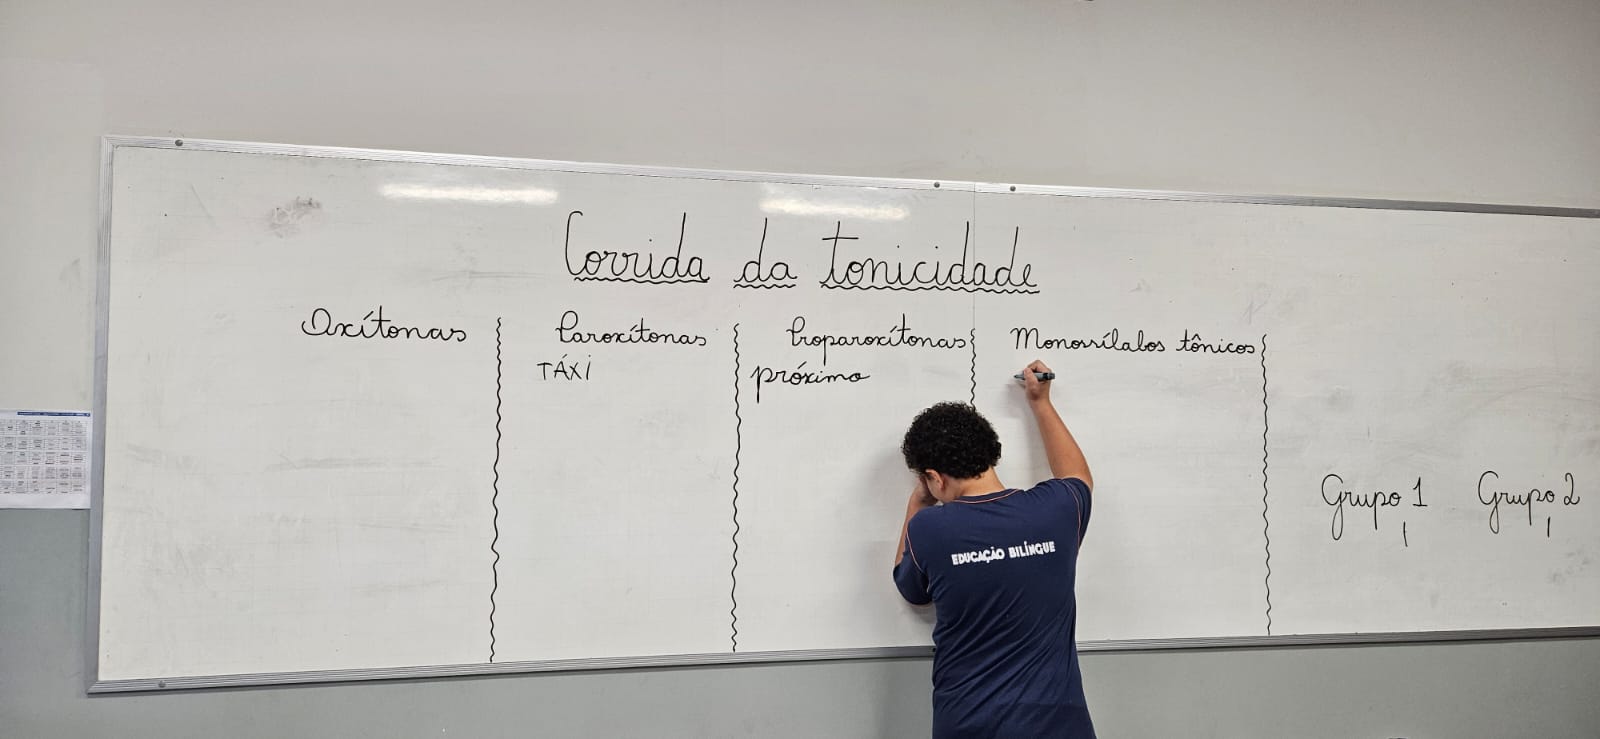 Corrida da tonicidade
Oxítonas
Paroxítonas
Proparoxítonas
Monossílabos tônicos
TÁXi
próximo
Grupo 1
Grupo 2
|
|
EDUCAÇÃO BILÍNGUE